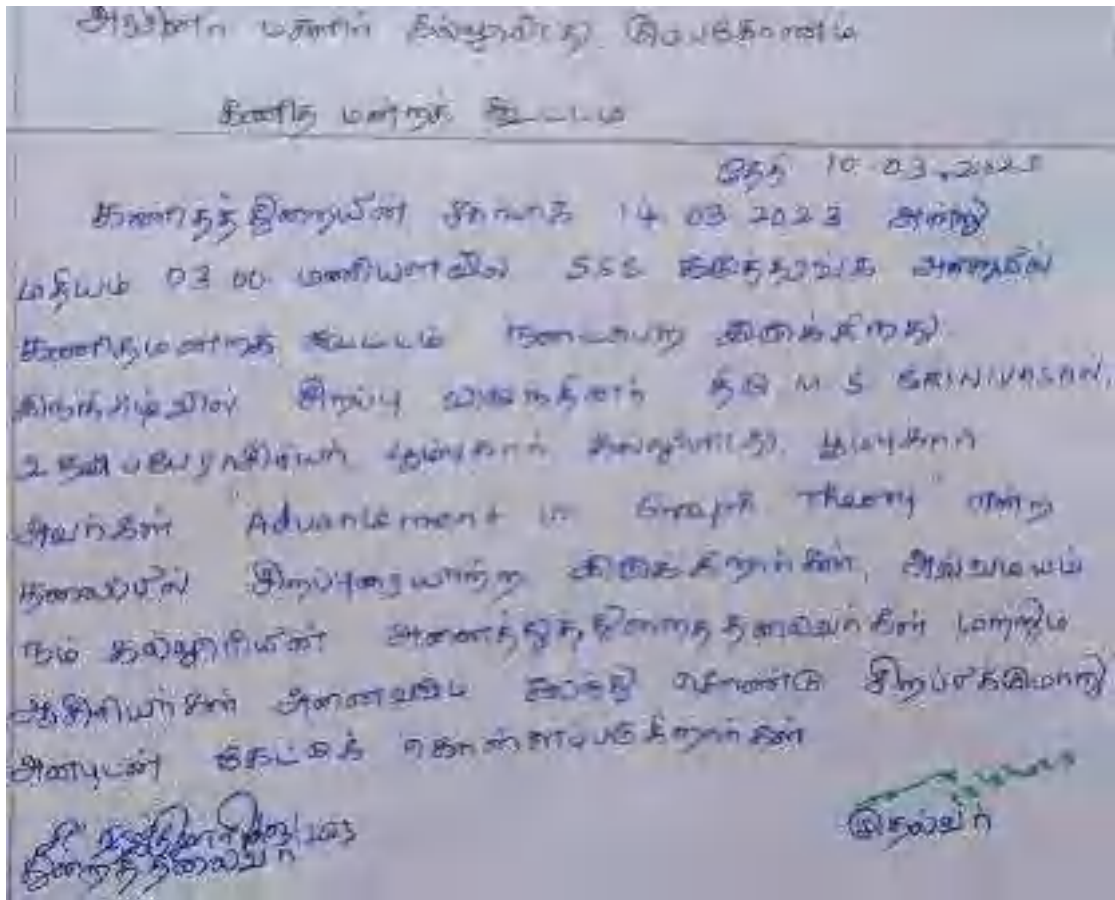 மகளிர் கல்லூரி
கணித மன்றக் கூட்டம்
தேதி 10.03.2023
கணிதத்துறையின் சார்பாக 14.03.2023 அன்று
மதியம் 03.00 மணியளவில் கருத்தரங்க அறையில்
கணிதமன்றக் கூட்டம் நடைபெற இருக்கிறது.
சிறப்பு விருந்தினர் திரு M.S. SRINIVASAN,
உதவிப்பேராசிரியர், பூம்புகார் கல்லூரி, பூம்புகார்
அவர்கள் "Advancement in Graph Theory" என்ற
தலைப்பில் சிறப்புரையாற்ற இருக்கிறார்கள். அவ்வமயம்
நம் கல்லூரியின் அனைத்துத்துறைத்தலைவர்கள் மற்றும்
ஆசிரியர்கள் அனைவரும் கலந்து கொண்டு சிறப்பிக்குமாறு
அன்புடன் கேட்டுக் கொள்ளப்படுகிறார்கள்
துறைத்தலைவர்
முதல்வர்